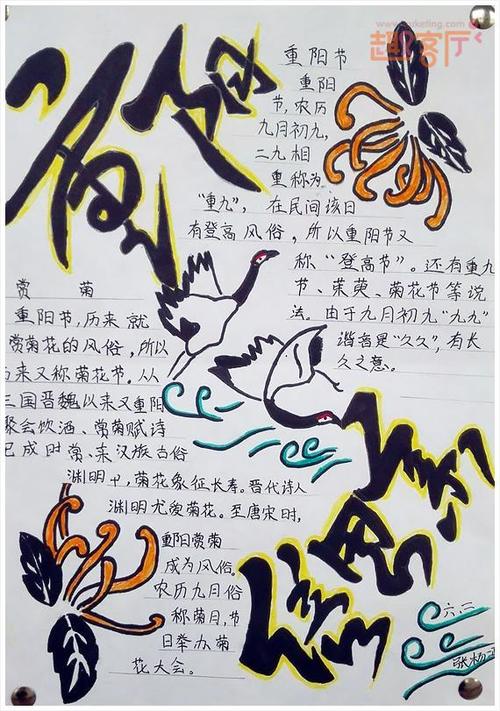 重阳
www.parketing.com
趣客厅
重阳节
重阳
节,农历
九月初九,
二九相
重称为
"重九",在民间该日
有登高风俗,所以重阳节又
称"登高节"。还有重九
节、茱萸、菊花节等说
法。由于九月初九"九九"
谐音是"久久",有长
久之意。
赏菊
重阳节,历来就
赏菊花的风俗,所以
来又称菊花节。从
三国晋魏以来又重阳
聚会饮酒、赏菊赋诗
已成时赏、来汉族古俗
渊明中,菊花象征长寿。晋代诗人
渊明尤爱菊花。至唐宋时,
重阳赏菊
成为风俗。
农历九月俗
称菊月,节
日举办菊
花大会。
六.二
张杨